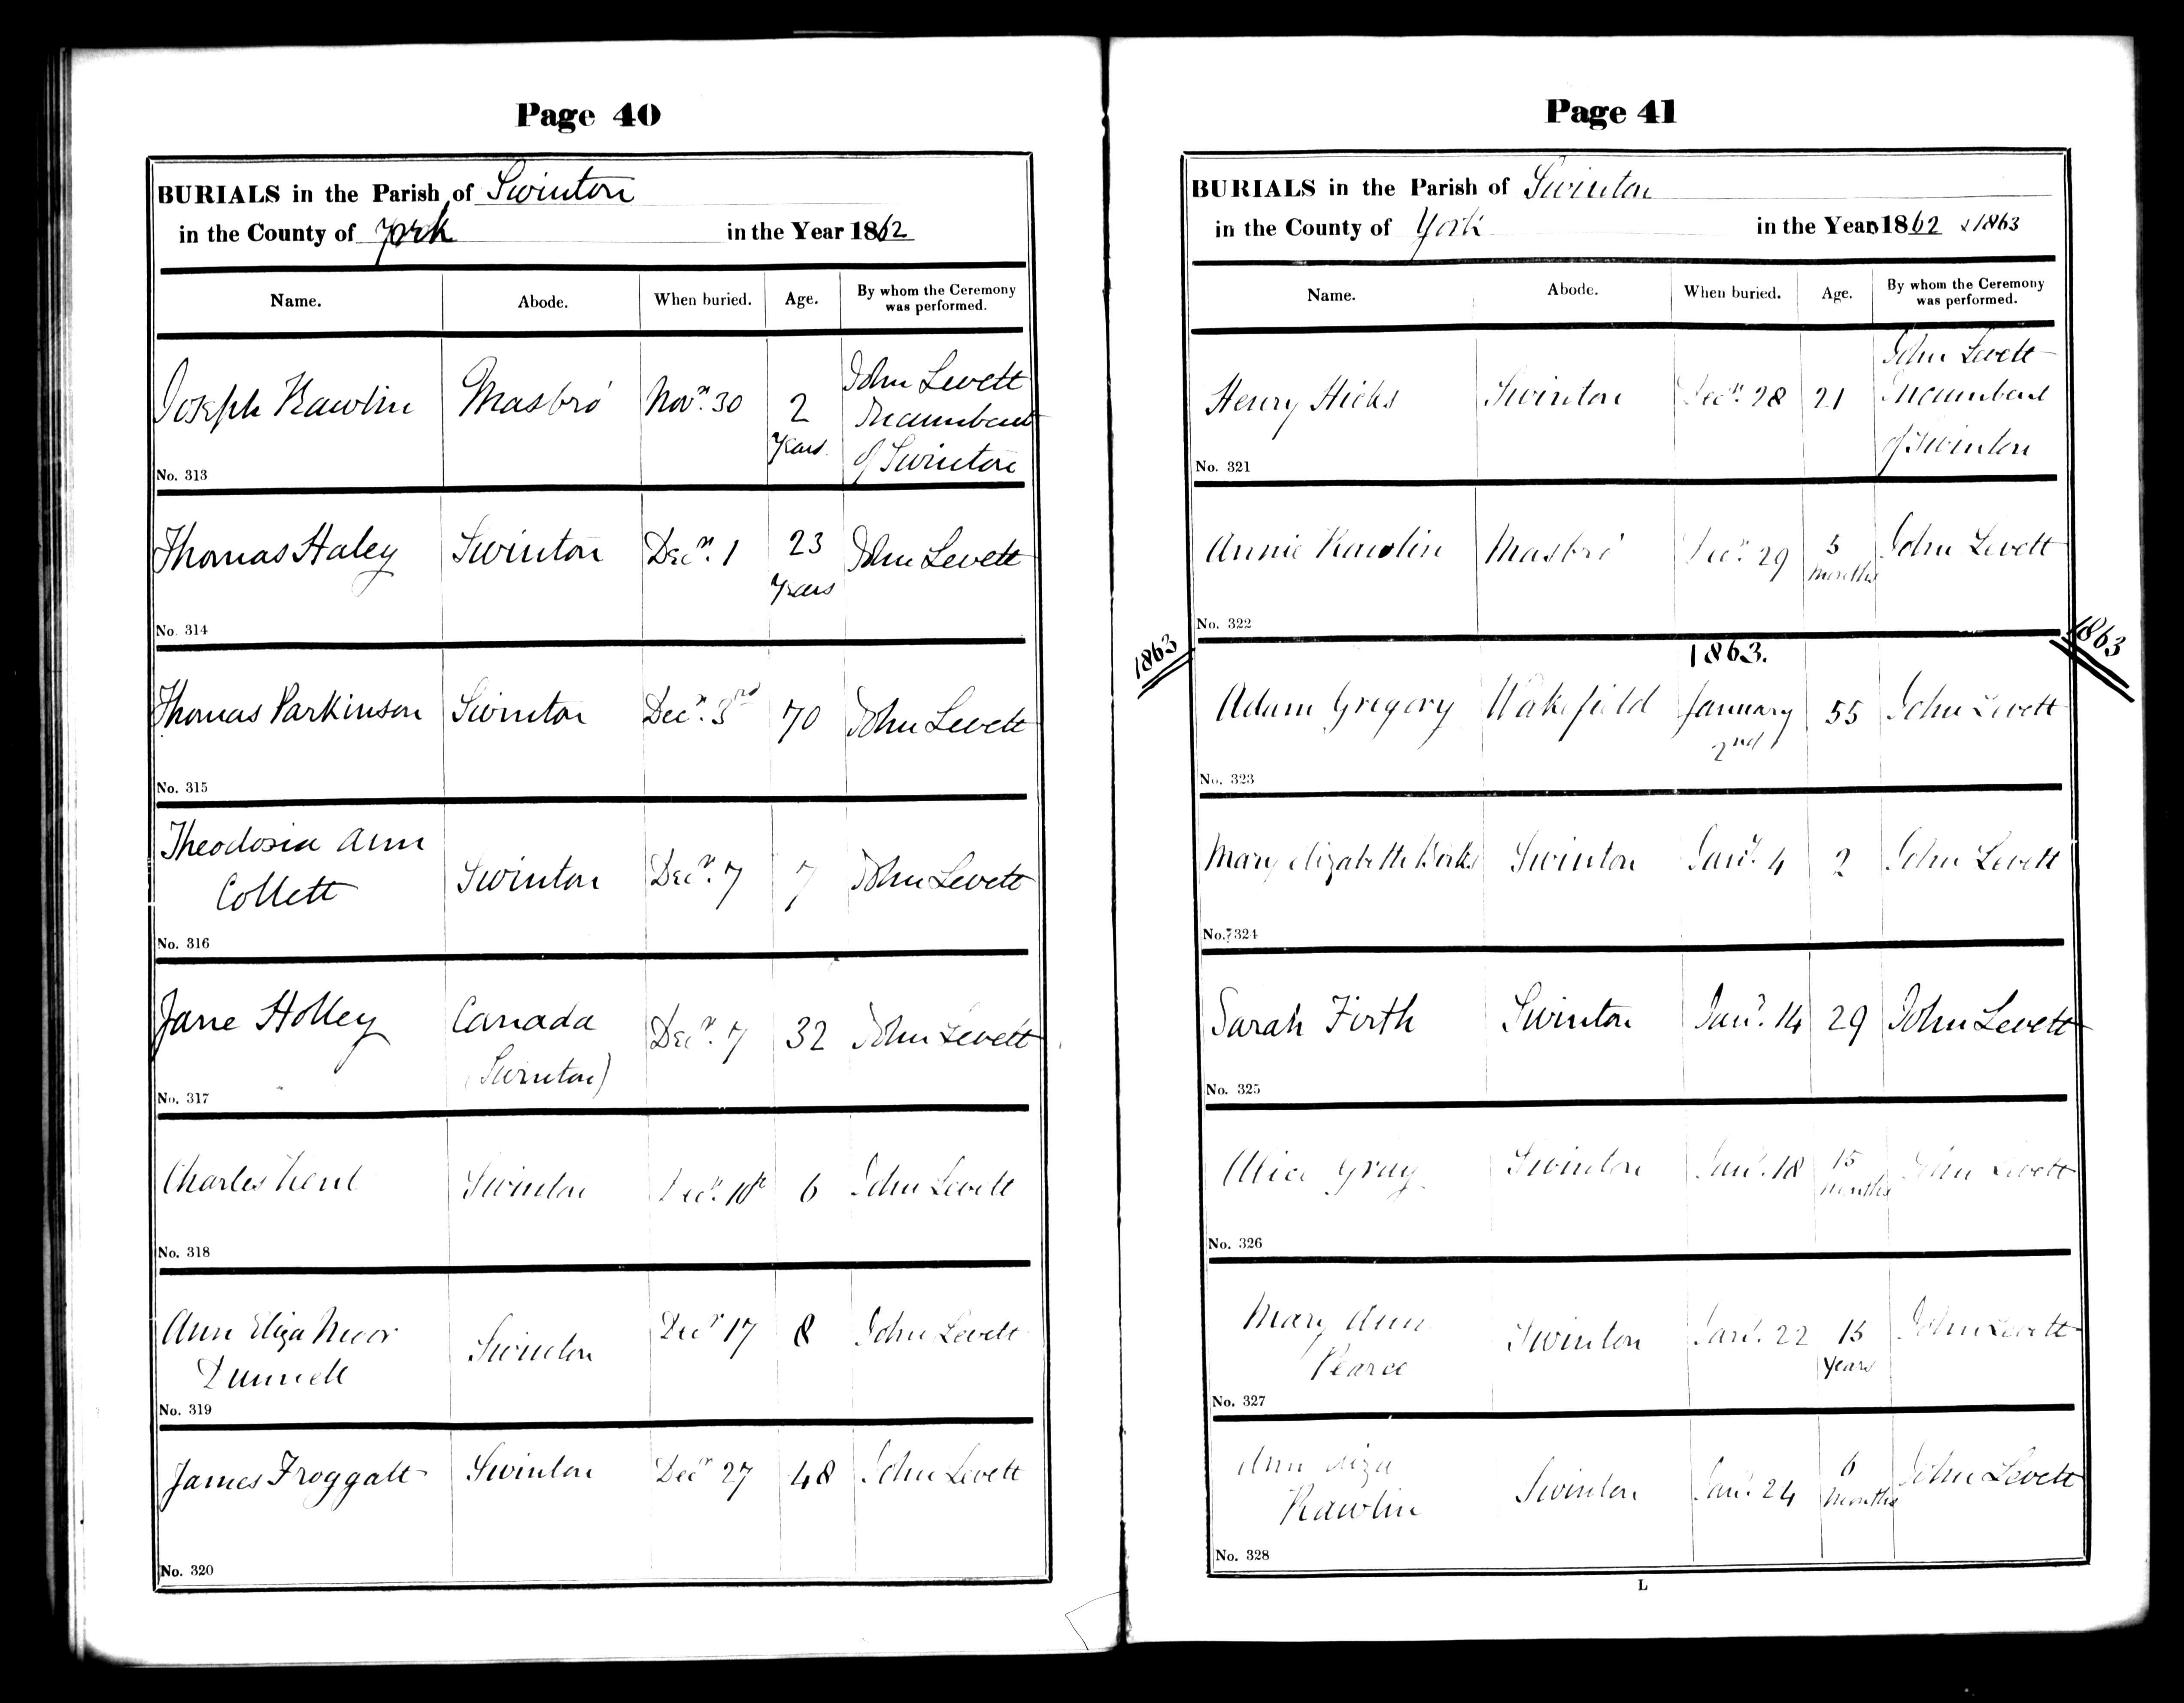 Page 40
BURIALS in the Parish of Swinton
in the County of York in the Year 1862
Name. Abode. When buried. Age. By whom the Ceremony was performed.
Joseph Rawlin Masbro' Novr. 30 2 years John Levett Incumbent of Swinton
No. 313
Thomas Haley Swinton Decr. 1 23 years John Levett
No. 314
Thomas Parkinson Swinton Decr. 3rd 70 John Levett
No. 315
Theodosia Ann Swinton Decr. 7 7 John Levett
Collett
No. 316
Jane Holley Canada Decr. 7 32 John Levett
(Swinton)
No. 317
Charles Kent Swinton Decr. 6 John Levett
No. 318
Ann Eliza Moor Swinton Decr 17 8 John Levett
Dunnell
No. 319
James Froggatt Swinton Decr 27 48 John Levett
No. 320
Page 41
BURIALS in the Parish of Swinton
in the County of York in the Years 1862 & 1863
Name. Abode. When buried. Age. By whom the Ceremony was performed.
Henry Hicks Swinton Decr. 28 21 John Levett Incumbent of Swinton
No. 321
Annie Rawlin Masbro' Decr. 29 months John Levett
No. 322
1863 1863. 1863
Adam Gregory Wakefield January 2nd 55 John Levett
No. 323
Mary Elizabeth Swinton Jany. 4 2 John Levett
No. 324
Sarah Firth Swinton Jany. 14 29 John Levett
No. 325
Alice Gray Swinton Jany. 18 15 months John Levett
No. 326
Mary Ann Swinton Jany. 22 15 years John Levett
Pearce
No. 327
Ann Eliza Swinton Jany. 24 6 months John Levett
Rawlin
No. 328
L